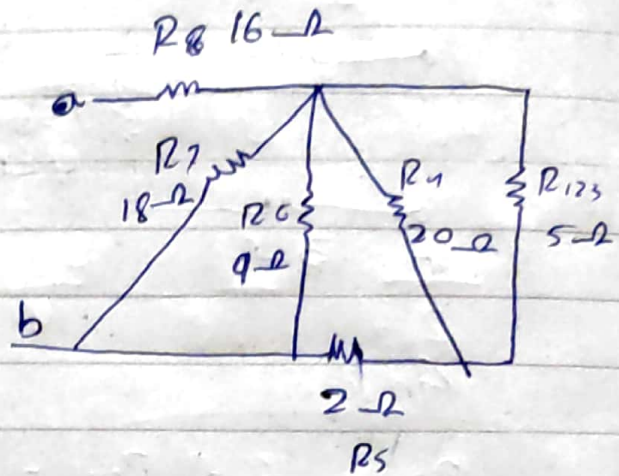 R8 16 Ω
a
R7
18 Ω
R6
9 Ω
R4
20 Ω
R123
5 Ω
b
2 Ω
R5